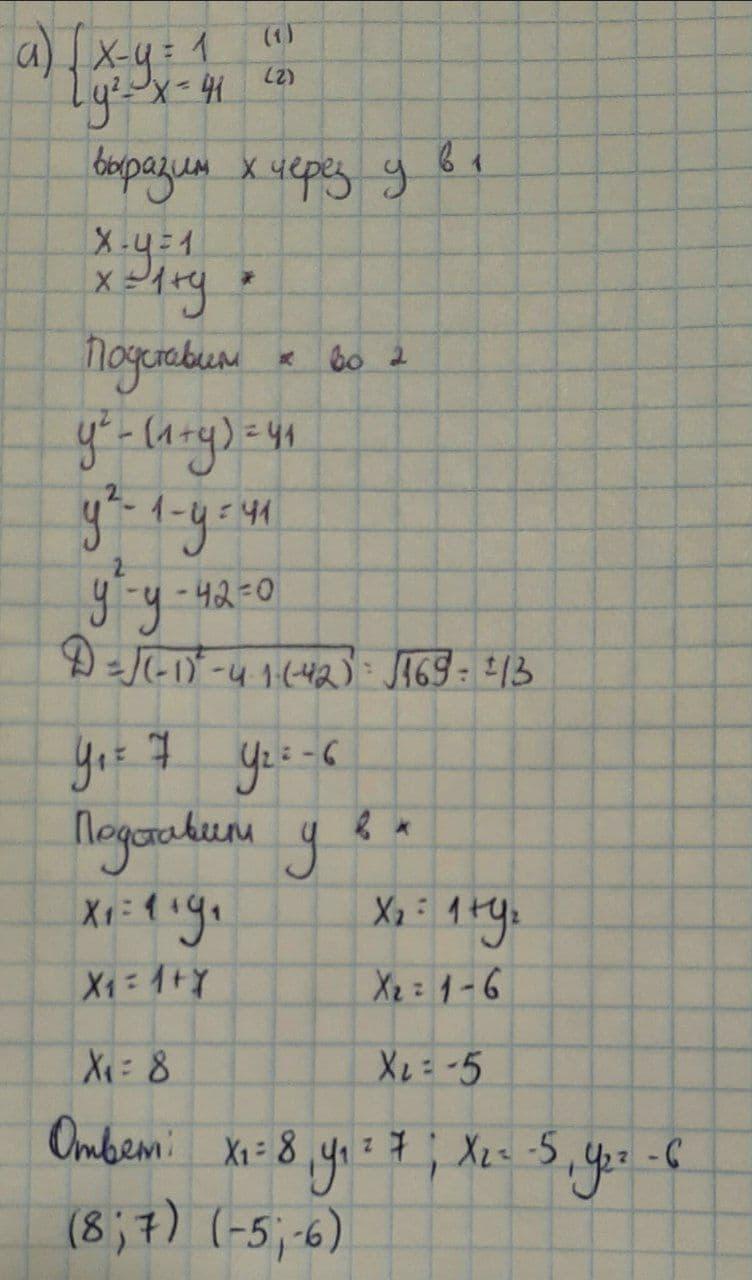 а) { x-y=1 (1)
y²-x=41 (2)
выразим x через y в 1
x-y=1
x=1+y *
Подставим * во 2
y²-(1+y)=41
y²-1-y=41
y²-y-42=0
D=√(-1)²-4·1·(-42) = √169 = ±13
y₁=7 y₂=-6
Подставим y в *
x₁=1+y₁ x₂=1+y₂
x₁=1+7 x₂=1-6
x₁=8 x₂=-5
Ответ: x₁=8, y₁=7; x₂=-5, y₂=-6
(8;7) (-5;-6)